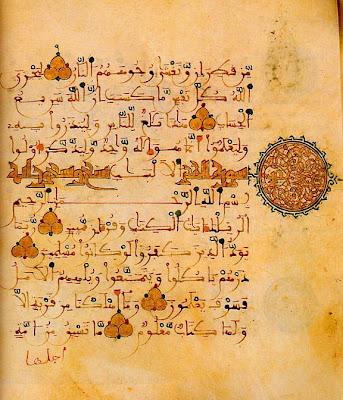 من قطران وتغشى وجوههم النار ليجزي
الله كل نفس ما كسبت إن الله سريع
الحساب هذا بلغ للناس ولينذروا به
وليعلموا أنما هو إله وحد وليذكر أولوا
الألبب سورة الحجر
بسم الله الرحمن الرحيم
الر تلك ءايت الكتب وقرءان مبين ربما
يود الذين كفروا لو كانوا مسلمين
ذرهم يأكلوا ويتمتعوا ويلههم الأمل
فسوف يعلمون وما أهلكنا من قرية إلا
ولها كتاب معلوم ما تسبق من أمة
أجلها